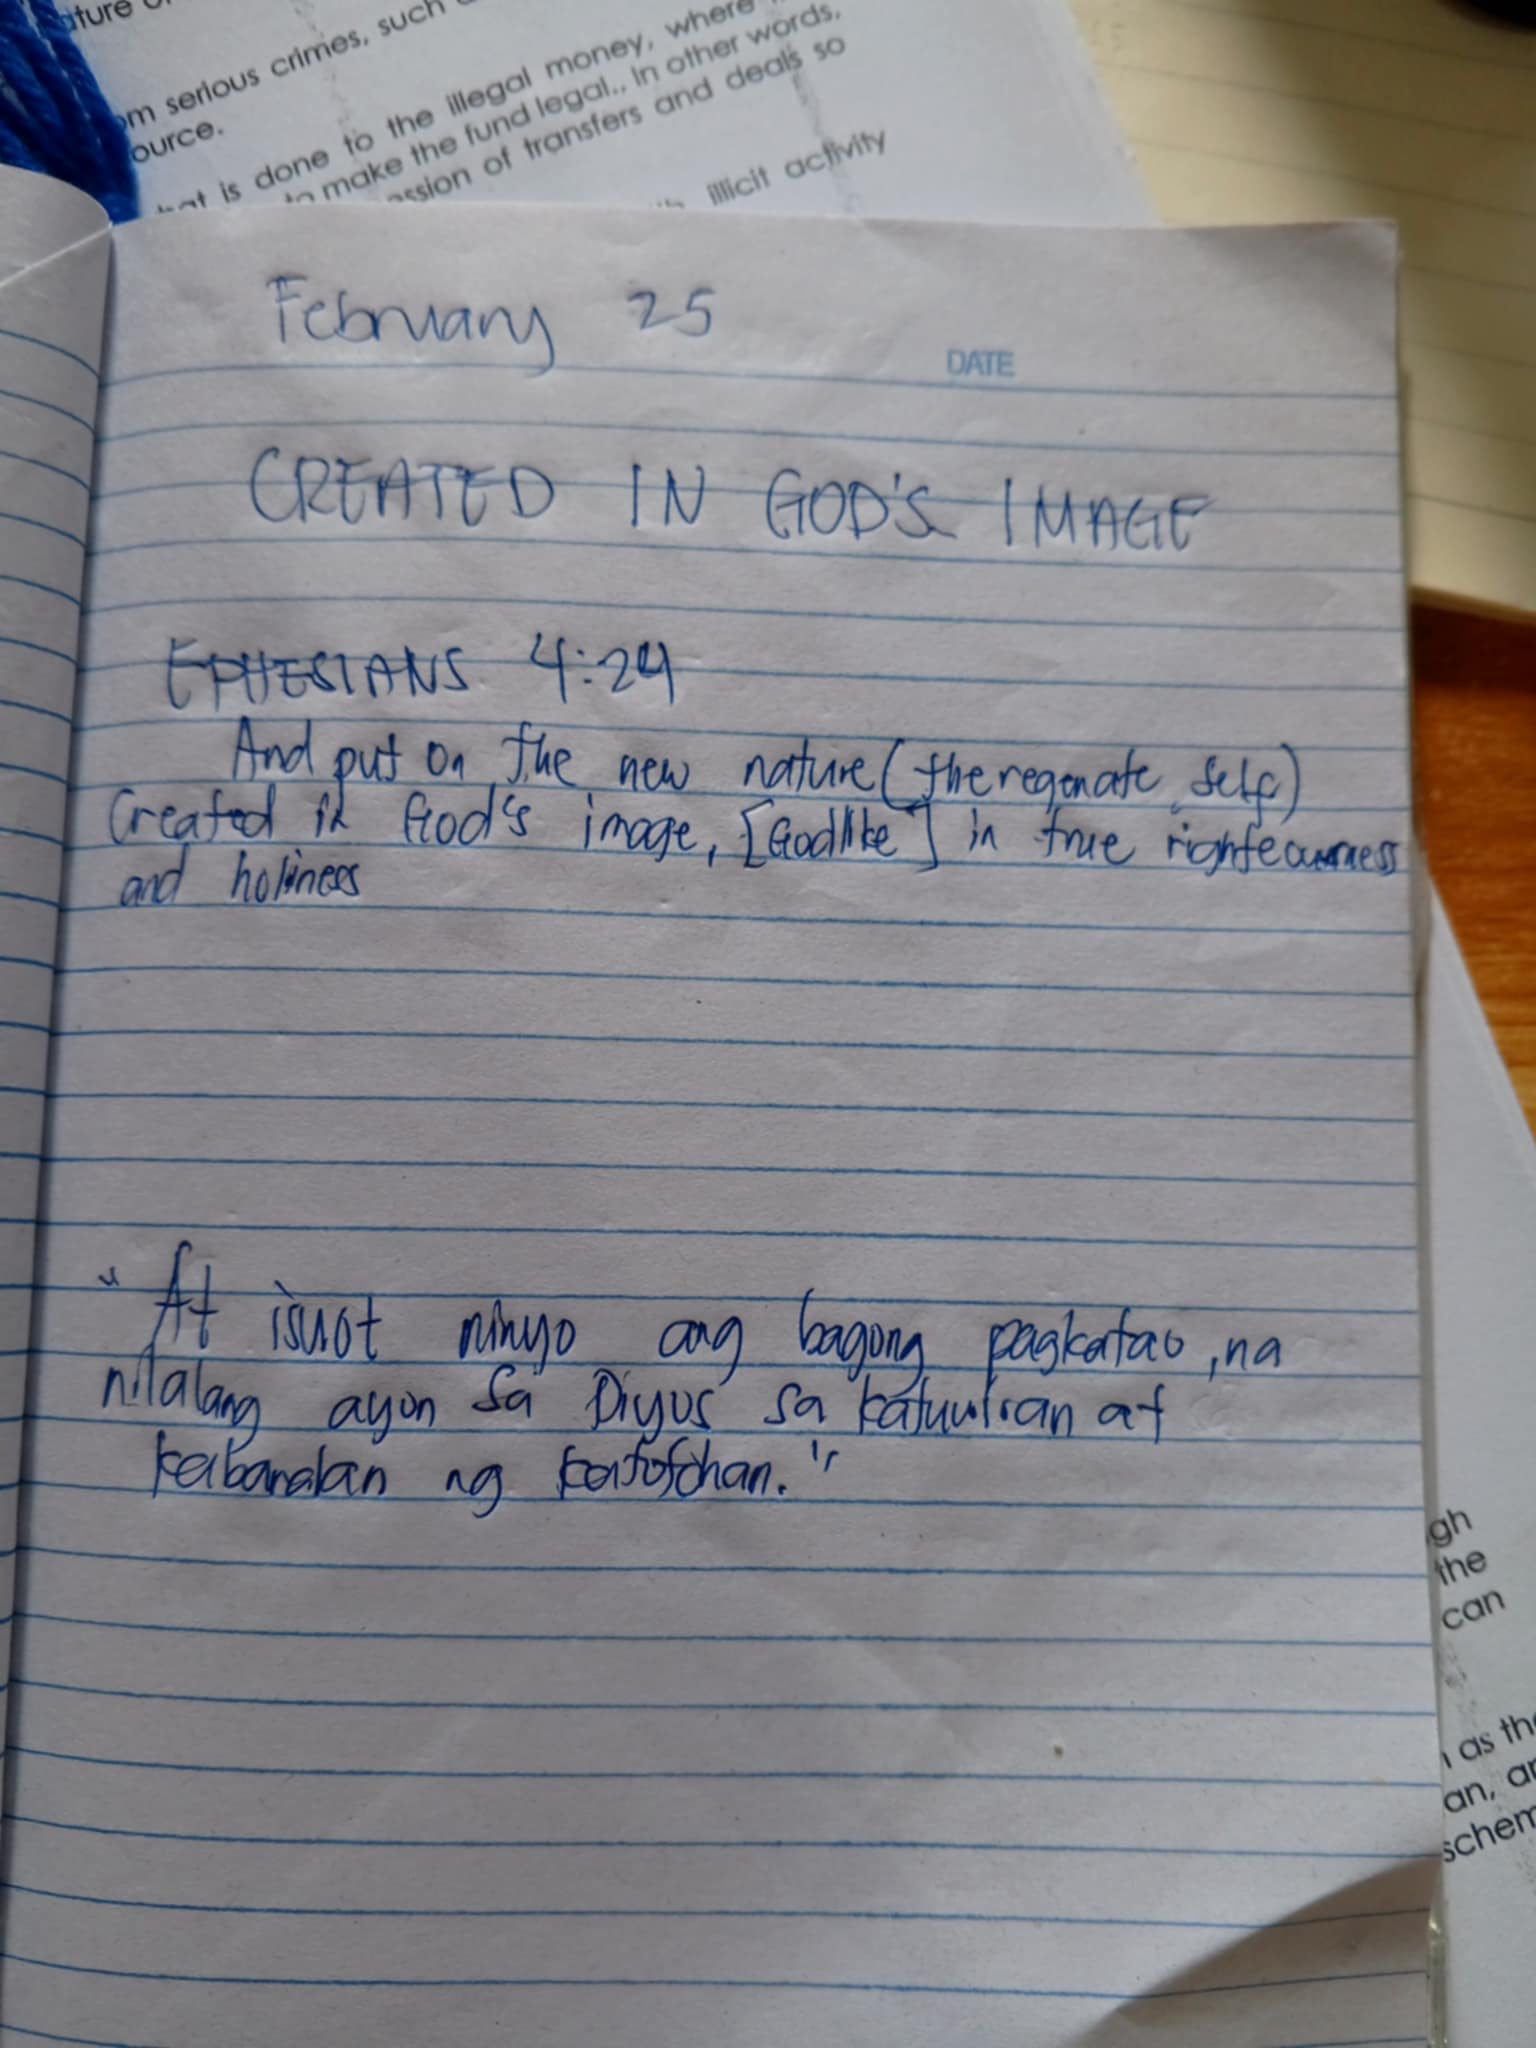 ature o
om serious crimes, such
ource.
hat is done to the illegal money, where
to make the fund legal.. In other words,
ession of transfers and deals so
illicit activity
February 25
DATE
CREATED IN GOD'S IMAGE
EPHESIANS 4:24
And put on the new nature (the regenate self)
Created in God's image, [Godlike] in true righteousness
and holiness
"At isuot ninyo ang bagong pagkatao, na
nilalang ayon sa Diyos sa katuwiran at
kabanalan ng katotohan."
gh
the
can
as the
an, an
schem